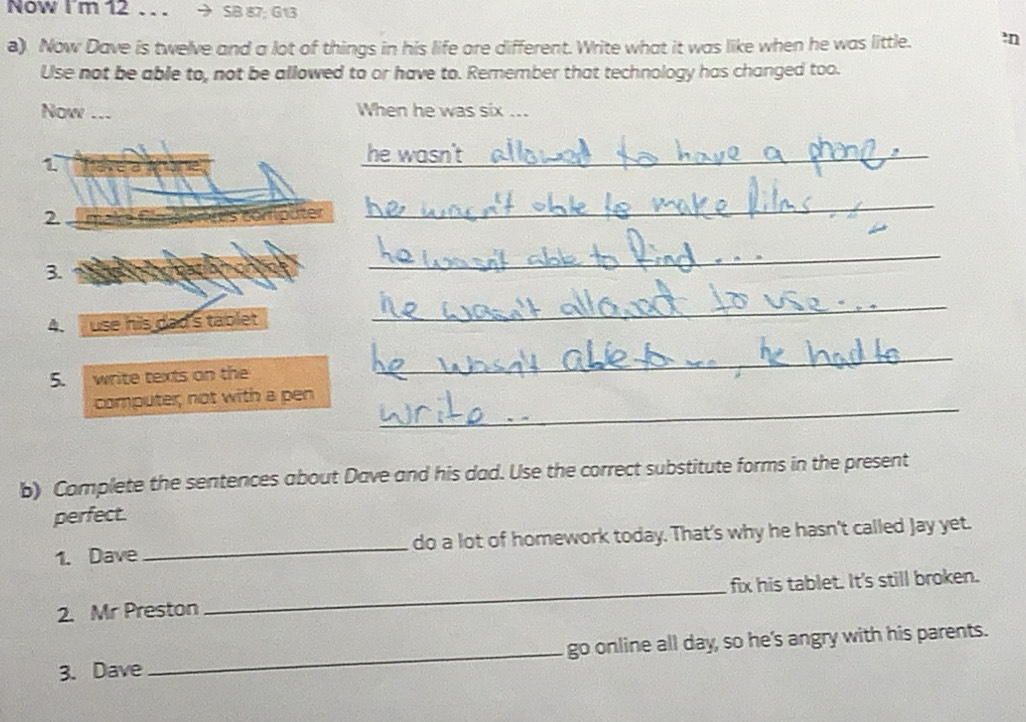 Now I'm 12 ... → SB 87; G13
a) Now Dave is twelve and a lot of things in his life are different. Write what it was like when he was little.
Use not be able to, not be allowed to or have to. Remember that technology has changed too.
Now ... When he was six ...
1. he wasn't allowed to have a phone.
2. computer he wasn't able to make films ...
3. he wasn't able to find ...
4. use his dad's tablet he wasn't allowed to use ...
5. write texts on the he wasn't able to ..., he had to
computer, not with a pen write ..
b) Complete the sentences about Dave and his dad. Use the correct substitute forms in the present
perfect.
1. Dave do a lot of homework today. That's why he hasn't called Jay yet.
2. Mr Preston fix his tablet. It's still broken.
3. Dave go online all day, so he's angry with his parents.